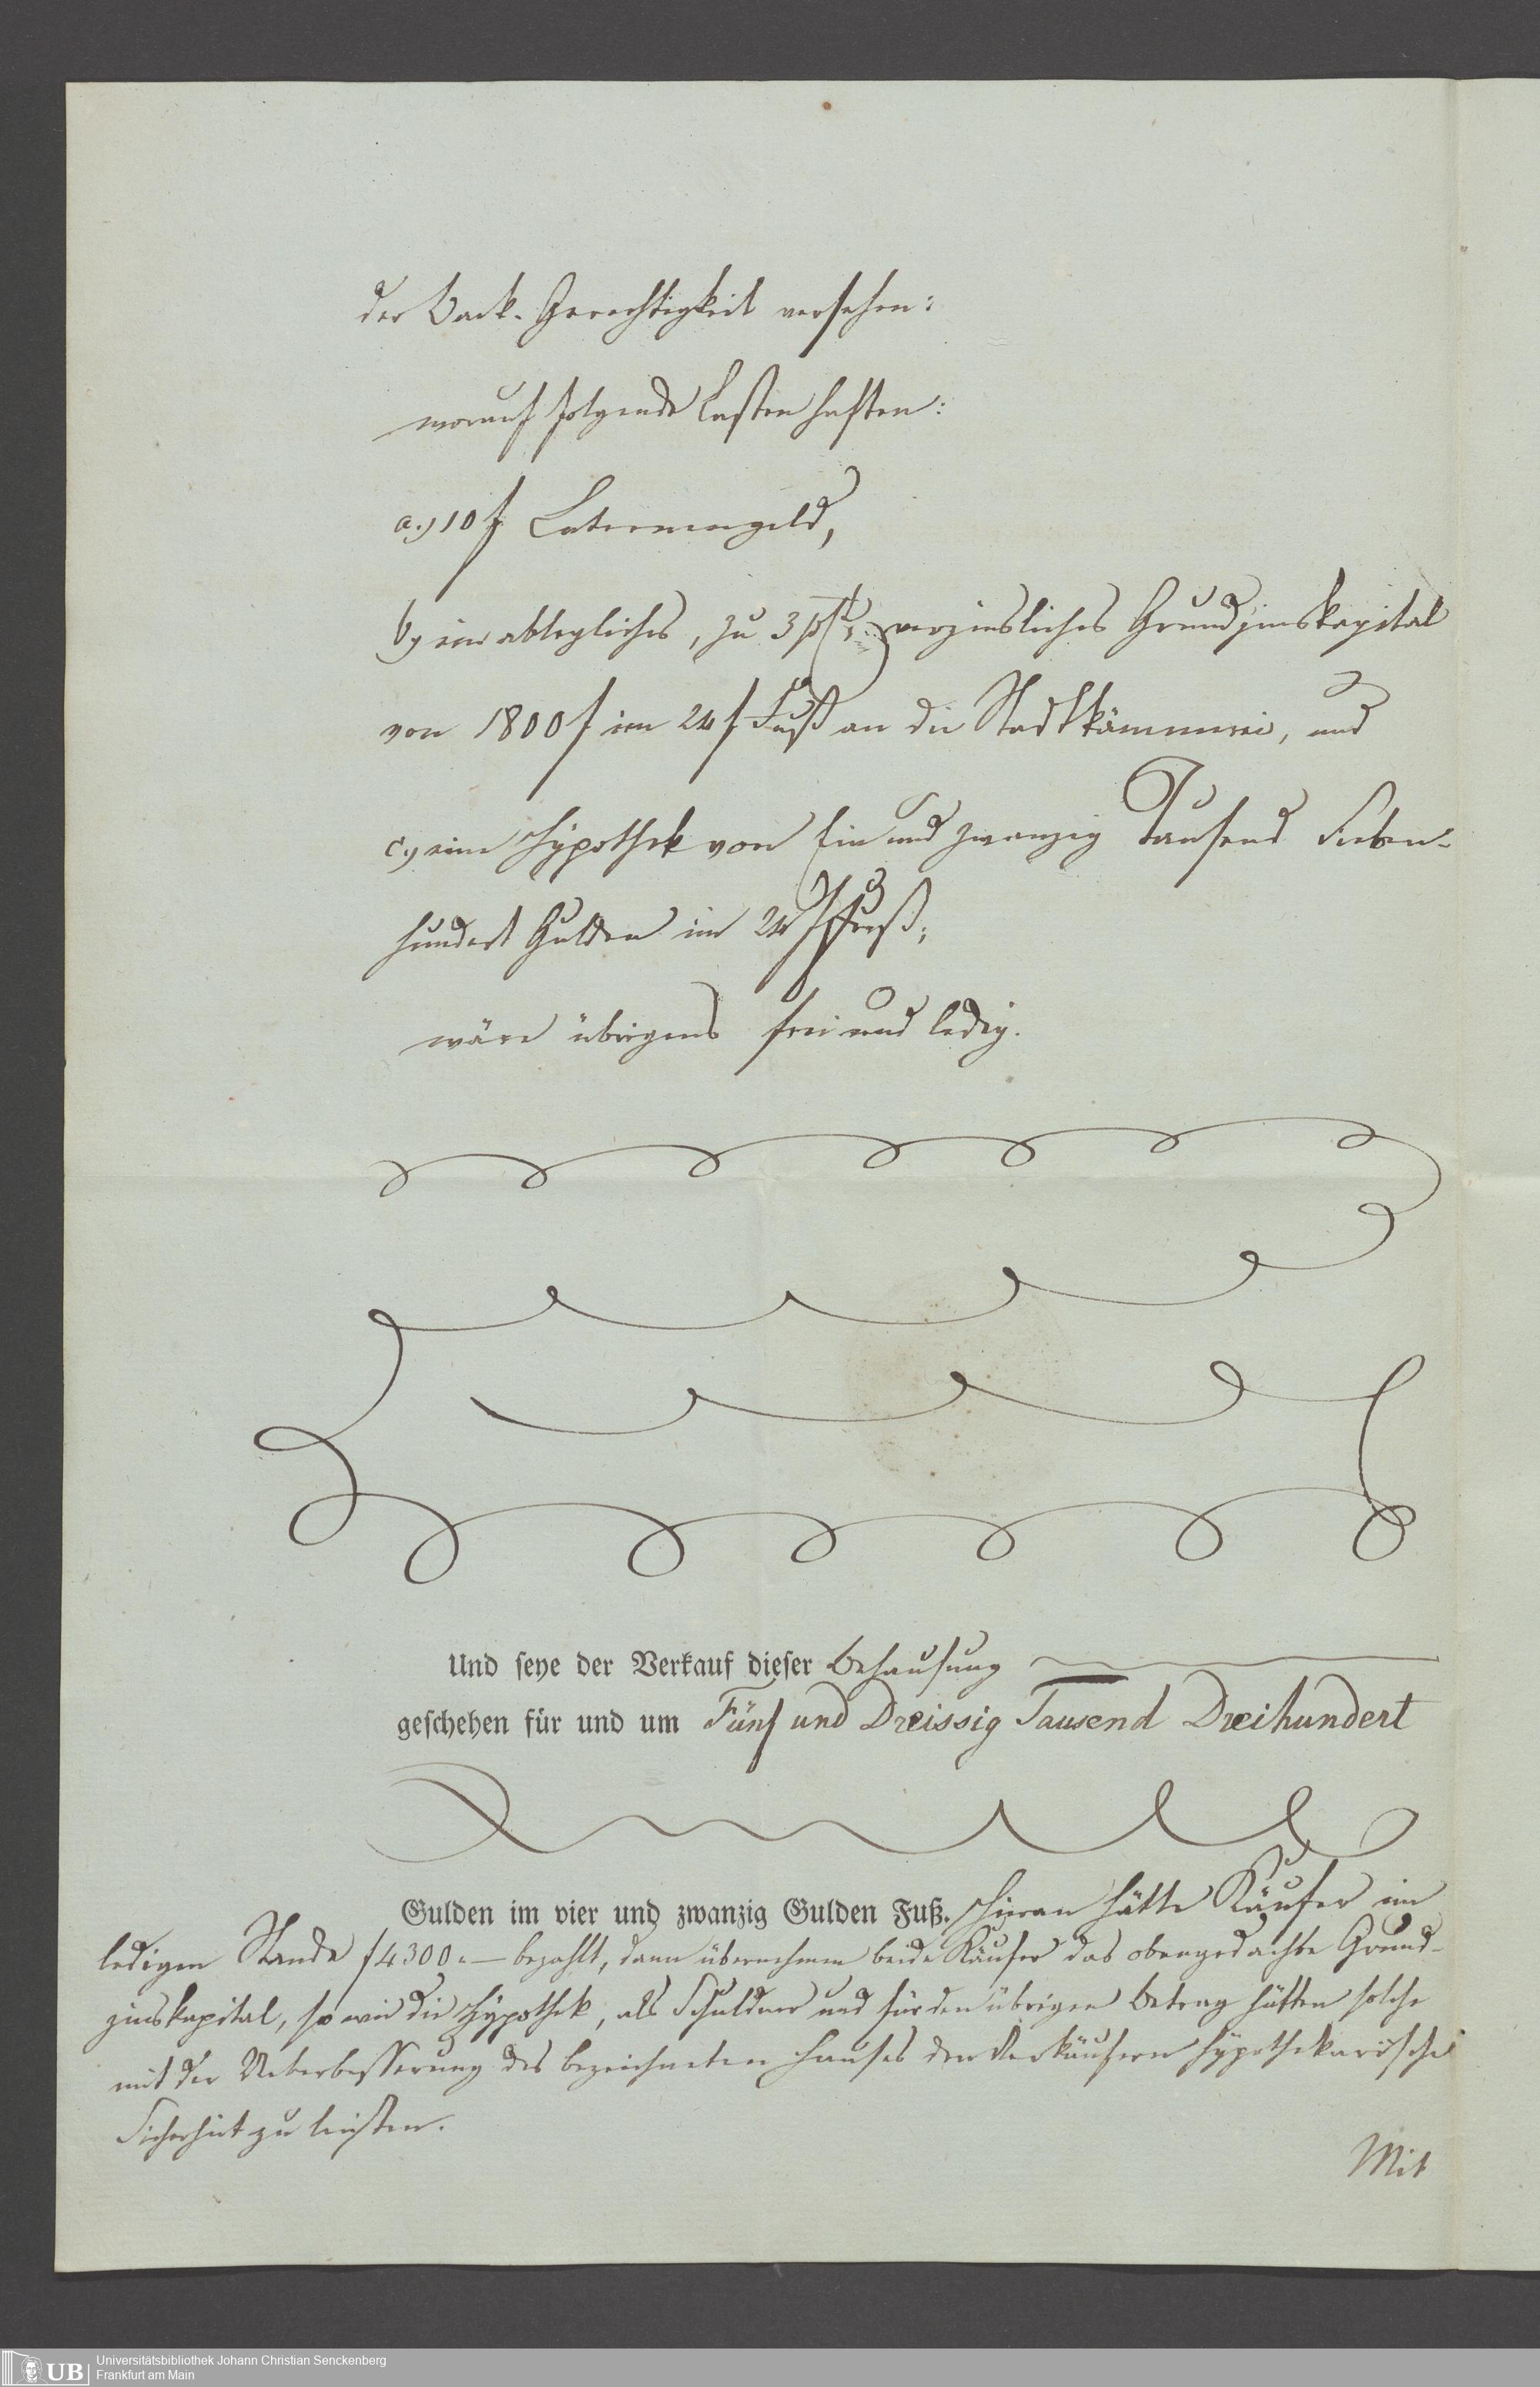 der Back-Gerechtigkeit versehen:
worauf folgende Lasten haften:
a.) 10 f Laternengeld,
b) ein ablegliches, zu 3 pCt; verzinsliches Grundzinskapital
von 1800 f im 24 f Fuß an die Stadtkämmerei, und
c.) eine Hypothek von Ein und zwanzig Tausend Sieben-
hundert Gulden im 24 f Fuß;
wäre übrigens frei und ledig.
Und seye der Verkauf dieser Behausung
geschehen für und um Fünf und Dreissig Tausend Dreihundert
Gulden im vier und zwanzig Gulden Fuß. Hieran hätte Käufer im
ledigen Stande f 4300.— bezahlt, dann übernehmen beide Käufer das obengedachte Grund-
zinskapital, so wie die Hypothek, als Schuldner und für den übrigen Betrag hätten solche
mit der Ueberbesserung des bezeichneten Hauses den Verkäufern hypothekarische
Sicherheit zu leisten.
Mit
UB
Universitätsbibliothek Johann Christian Senckenberg
Frankfurt am Main